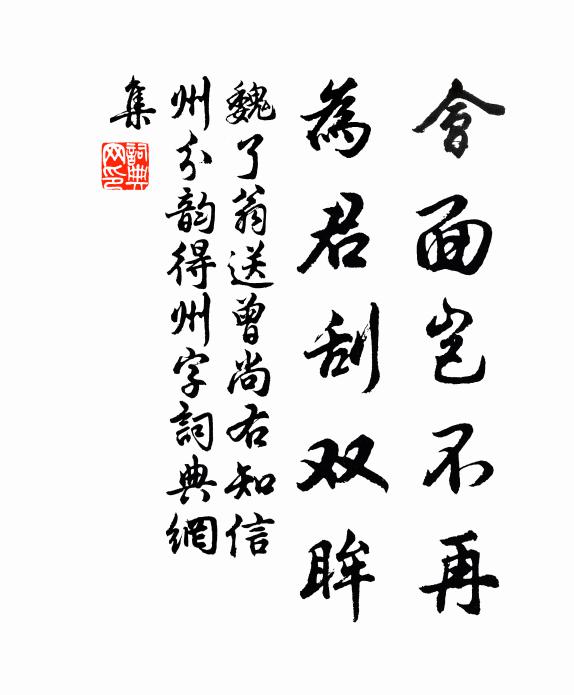 會面岂不再
為君刮双眸
魏了翁送曾尚右知信
州分韵得州字詞典網
集
詞典
网印